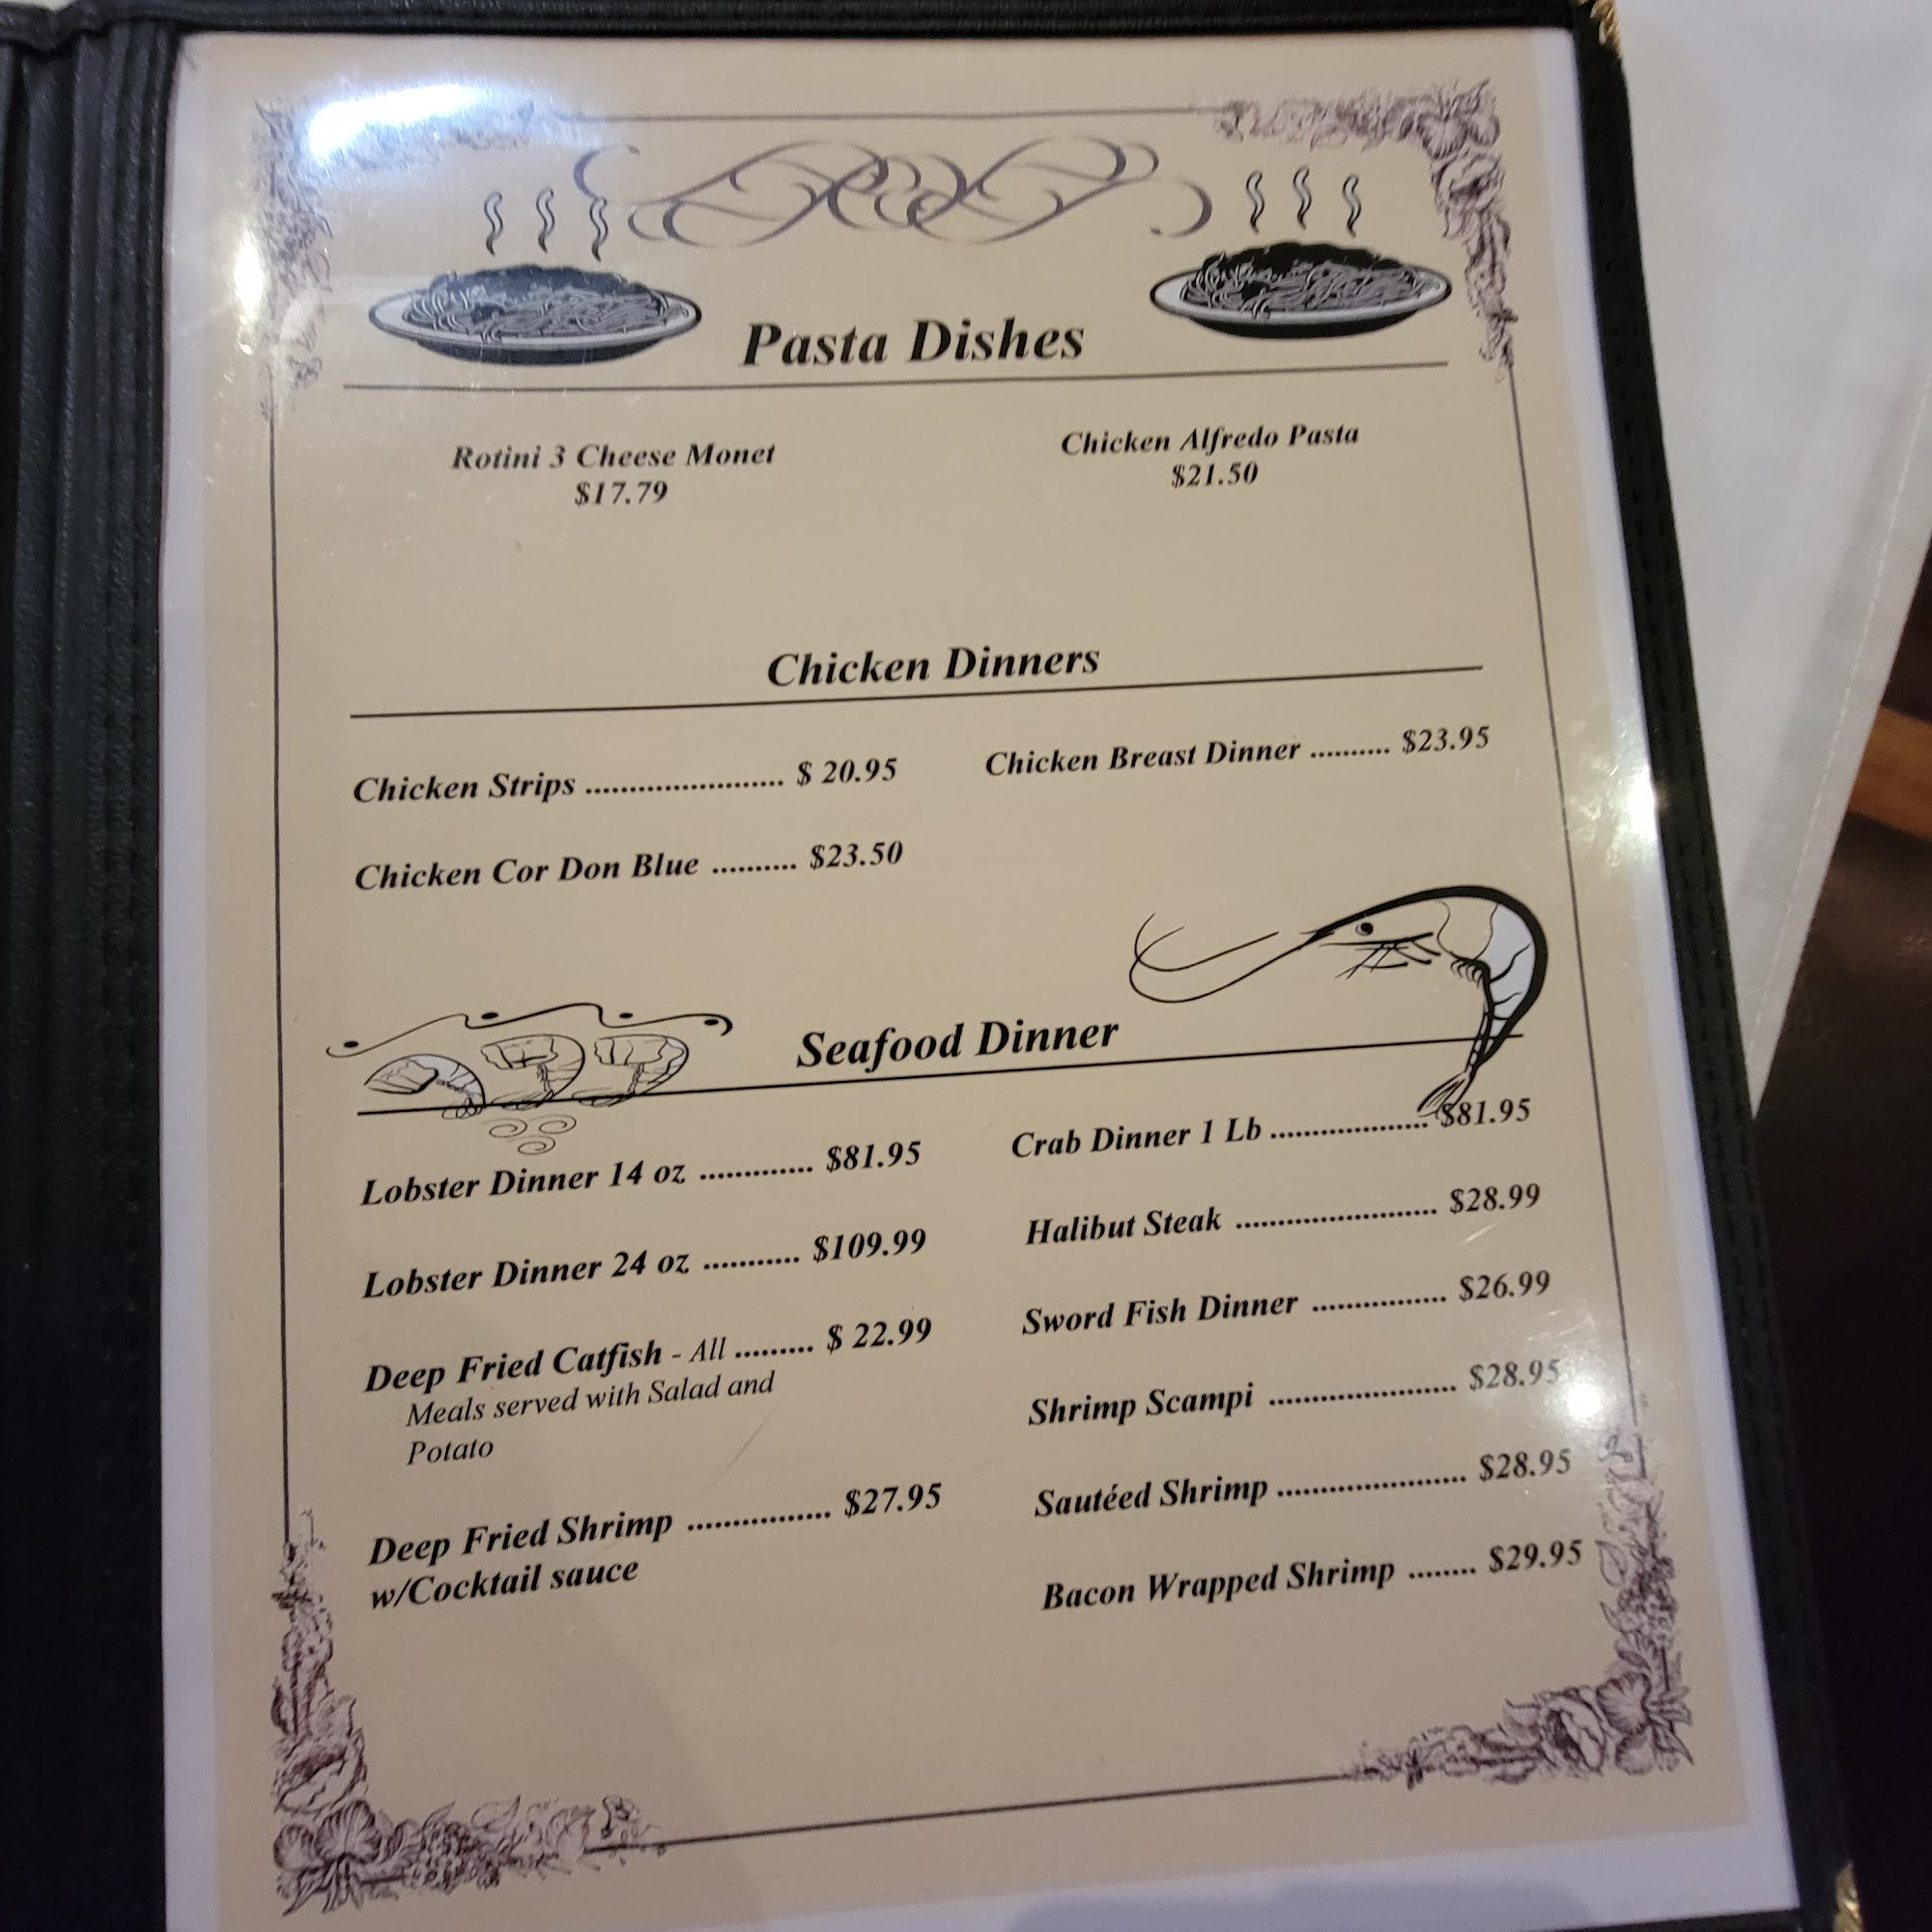 Pasta Dishes
Rotini 3 Cheese Monet
$17.79
Chicken Alfredo Pasta
$21.50
Chicken Dinners
Chicken Strips ....................... $ 20.95
Chicken Cor Don Blue .......... $23.50
Chicken Breast Dinner .......... $23.95
Seafood Dinner
Lobster Dinner 14 oz ............. $81.95
Lobster Dinner 24 oz ........... $109.99
Deep Fried Catfish - All ......... $ 22.99
Meals served with Salad and
Potato
Deep Fried Shrimp ................ $27.95
w/Cocktail sauce
Crab Dinner 1 Lb ................... $81.95
Halibut Steak ........................ $28.99
Sword Fish Dinner ................ $26.99
Shrimp Scampi ...................... $28.95
Sautéed Shrimp ...................... $28.95
Bacon Wrapped Shrimp ........ $29.95